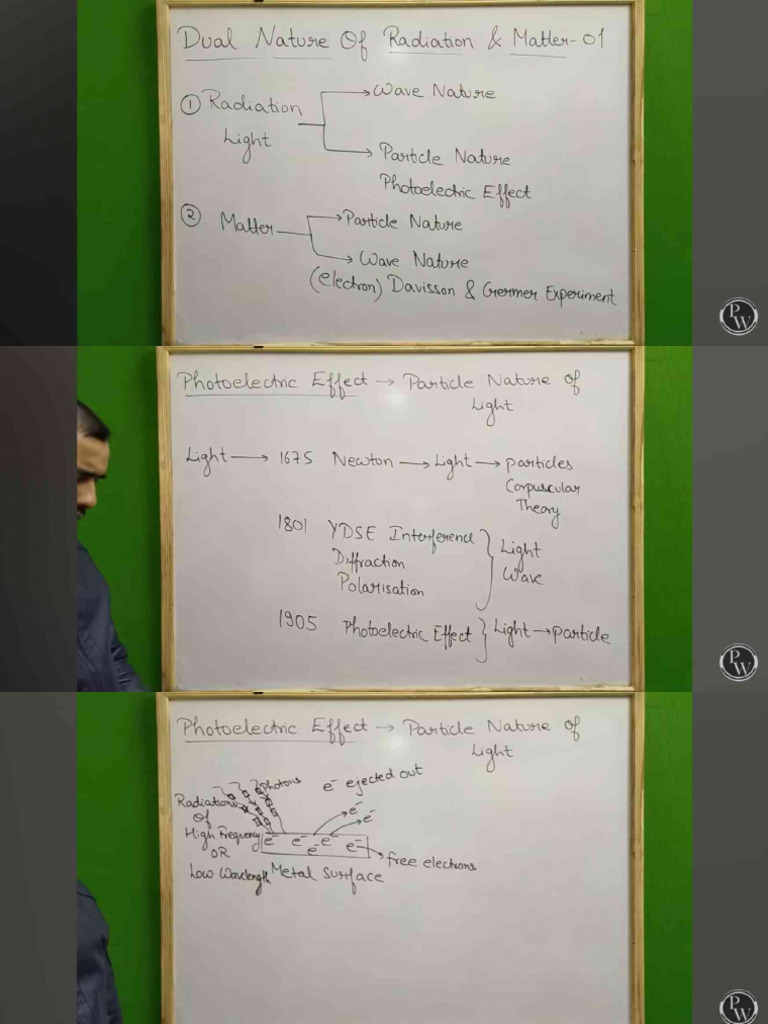 Dual Nature Of Radiation & Matter-01
① Radiation
Light
→ Wave Nature
→ Particle Nature
Photoelectric Effect
② Matter
→ Particle Nature
→ Wave Nature
(electron) Davisson & Germer Experiment
PW
Photoelectric Effect → Particle Nature of
Light
Light → 1675 Newton → Light → particles
Corpuscular
Theory
1801 YDSE Interference
Diffraction
Polarisation
} Light
Wave
1905 Photoelectric Effect } Light → particle
PW
Photoelectric Effect → Particle Nature of
Light
Photons
e⁻ ejected out
Radiations
Of
High Frequency
OR
Low Wavelength
e⁻ e⁻
e⁻ e⁻ e⁻ e⁻ e⁻
→ free electrons
Metal Surface
PW